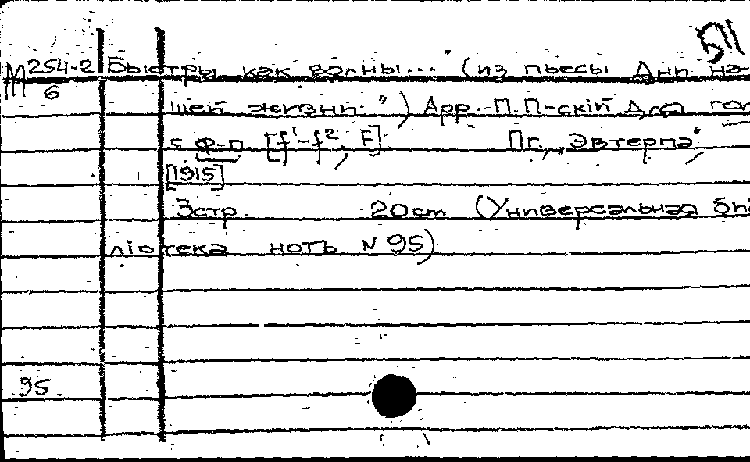 511
М 254-2 Быстры как волны... (из пьесы "Дни на-
6 шей жизни") Арр. П. П-скій Для гол
с ф-п [f¹-f², F] Пг., "Эвтерпа",
[1915]
3стр. 20cm (Универсальная биб
ліотека нотъ N 95)
95